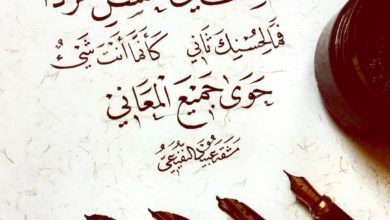 فما لحسنك ثاني كأنما أنت شيء
حوى جميع المعاني
مشقه عبيدة النفيعي